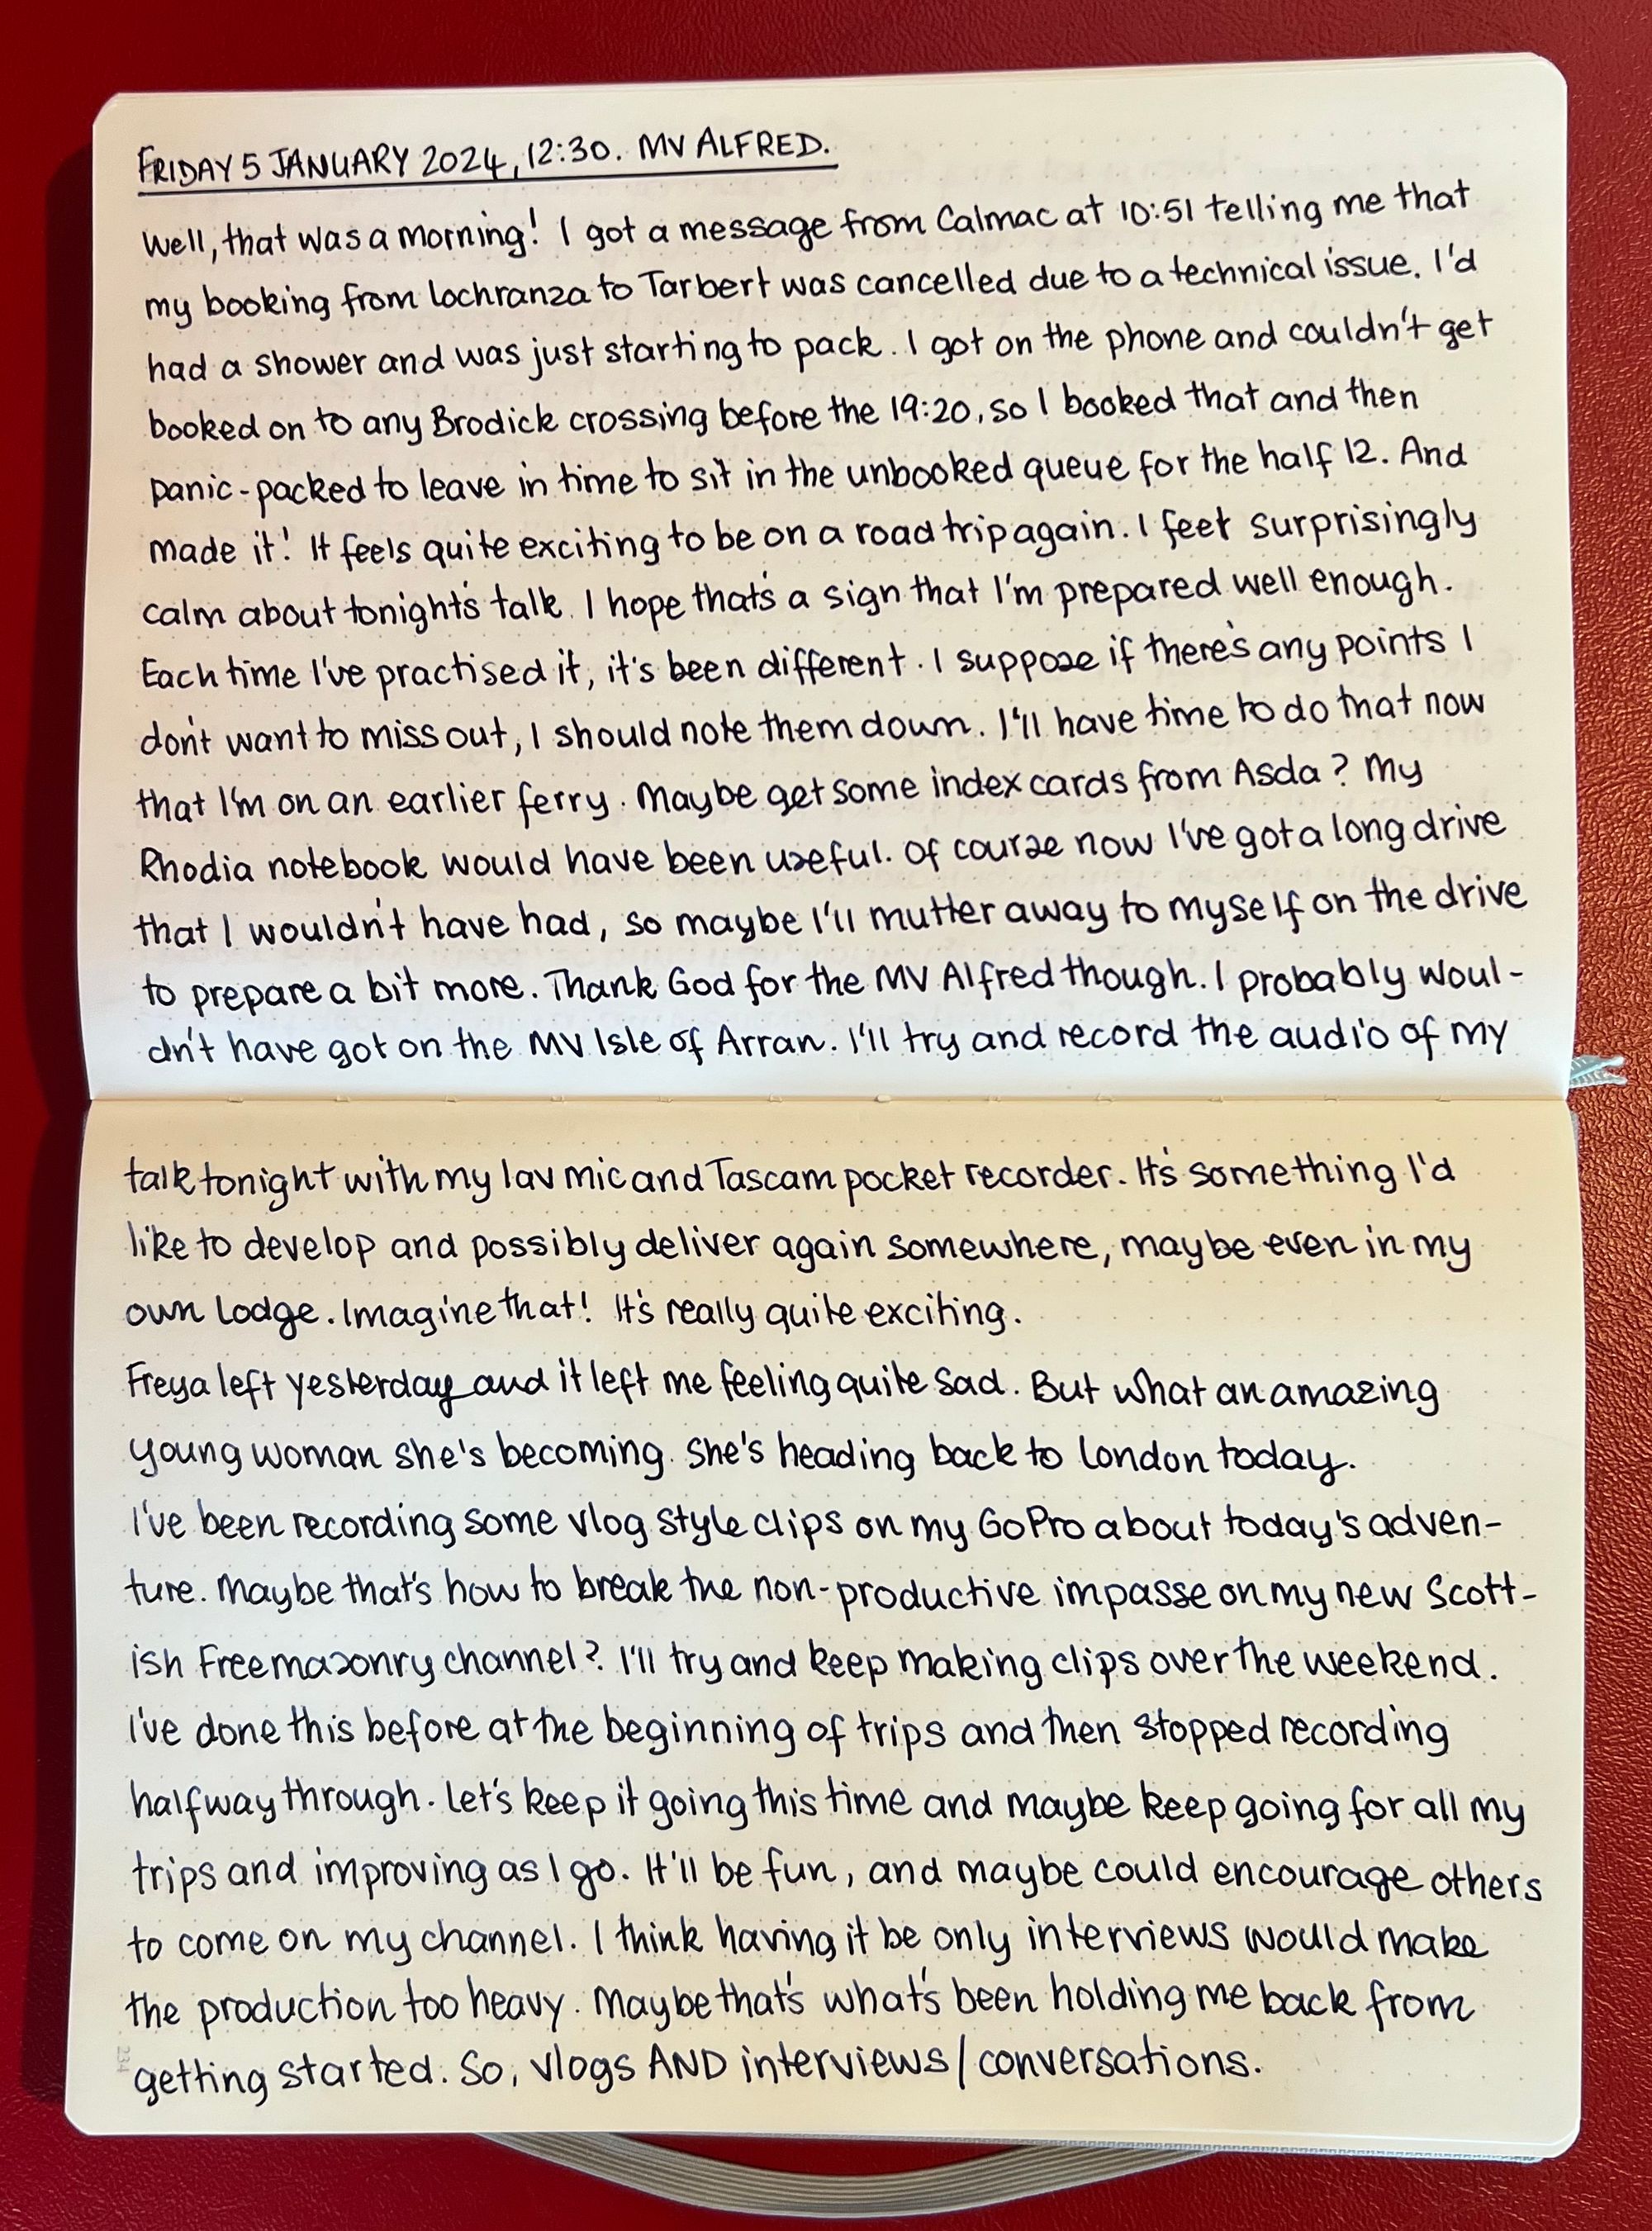 FRIDAY 5 JANUARY 2024, 12:30. MV ALFRED.
Well, that was a morning! I got a message from Calmac at 10:51 telling me that
my booking from Lochranza to Tarbert was cancelled due to a technical issue. I'd
had a shower and was just starting to pack. I got on the phone and couldn't get
booked on to any Brodick crossing before the 19:20, so I booked that and then
panic-packed to leave in time to sit in the unbooked queue for the half 12. And
made it! It feels quite exciting to be on a road trip again. I feel surprisingly
calm about tonight's talk. I hope that's a sign that I'm prepared well enough.
Each time I've practised it, it's been different. I suppose if there's any points I
don't want to miss out, I should note them down. I'll have time to do that now
that I'm on an earlier ferry. Maybe get some index cards from Asda? My
Rhodia notebook would have been useful. Of course now I've got a long drive
that I wouldn't have had, so maybe I'll mutter away to myself on the drive
to prepare a bit more. Thank God for the MV Alfred though. I probably woul-
dn't have got on the MV Isle of Arran. I'll try and record the audio of my
talk tonight with my lav mic and Tascam pocket recorder. It's something I'd
like to develop and possibly deliver again somewhere, maybe even in my
own Lodge. Imagine that! It's really quite exciting.
Freya left yesterday and it left me feeling quite sad. But what an amazing
young woman she's becoming. She's heading back to London today.
I've been recording some vlog style clips on my GoPro about today's adven-
ture. Maybe that's how to break the non-productive impasse on my new Scott-
ish Freemasonry channel? I'll try and keep making clips over the weekend.
I've done this before at the beginning of trips and then stopped recording
halfway through. Let's keep it going this time and maybe keep going for all my
trips and improving as I go. It'll be fun, and maybe could encourage others
to come on my channel. I think having it be only interviews would make
the production too heavy. Maybe that's what's been holding me back from
getting started. So, vlogs AND interviews/conversations.
234